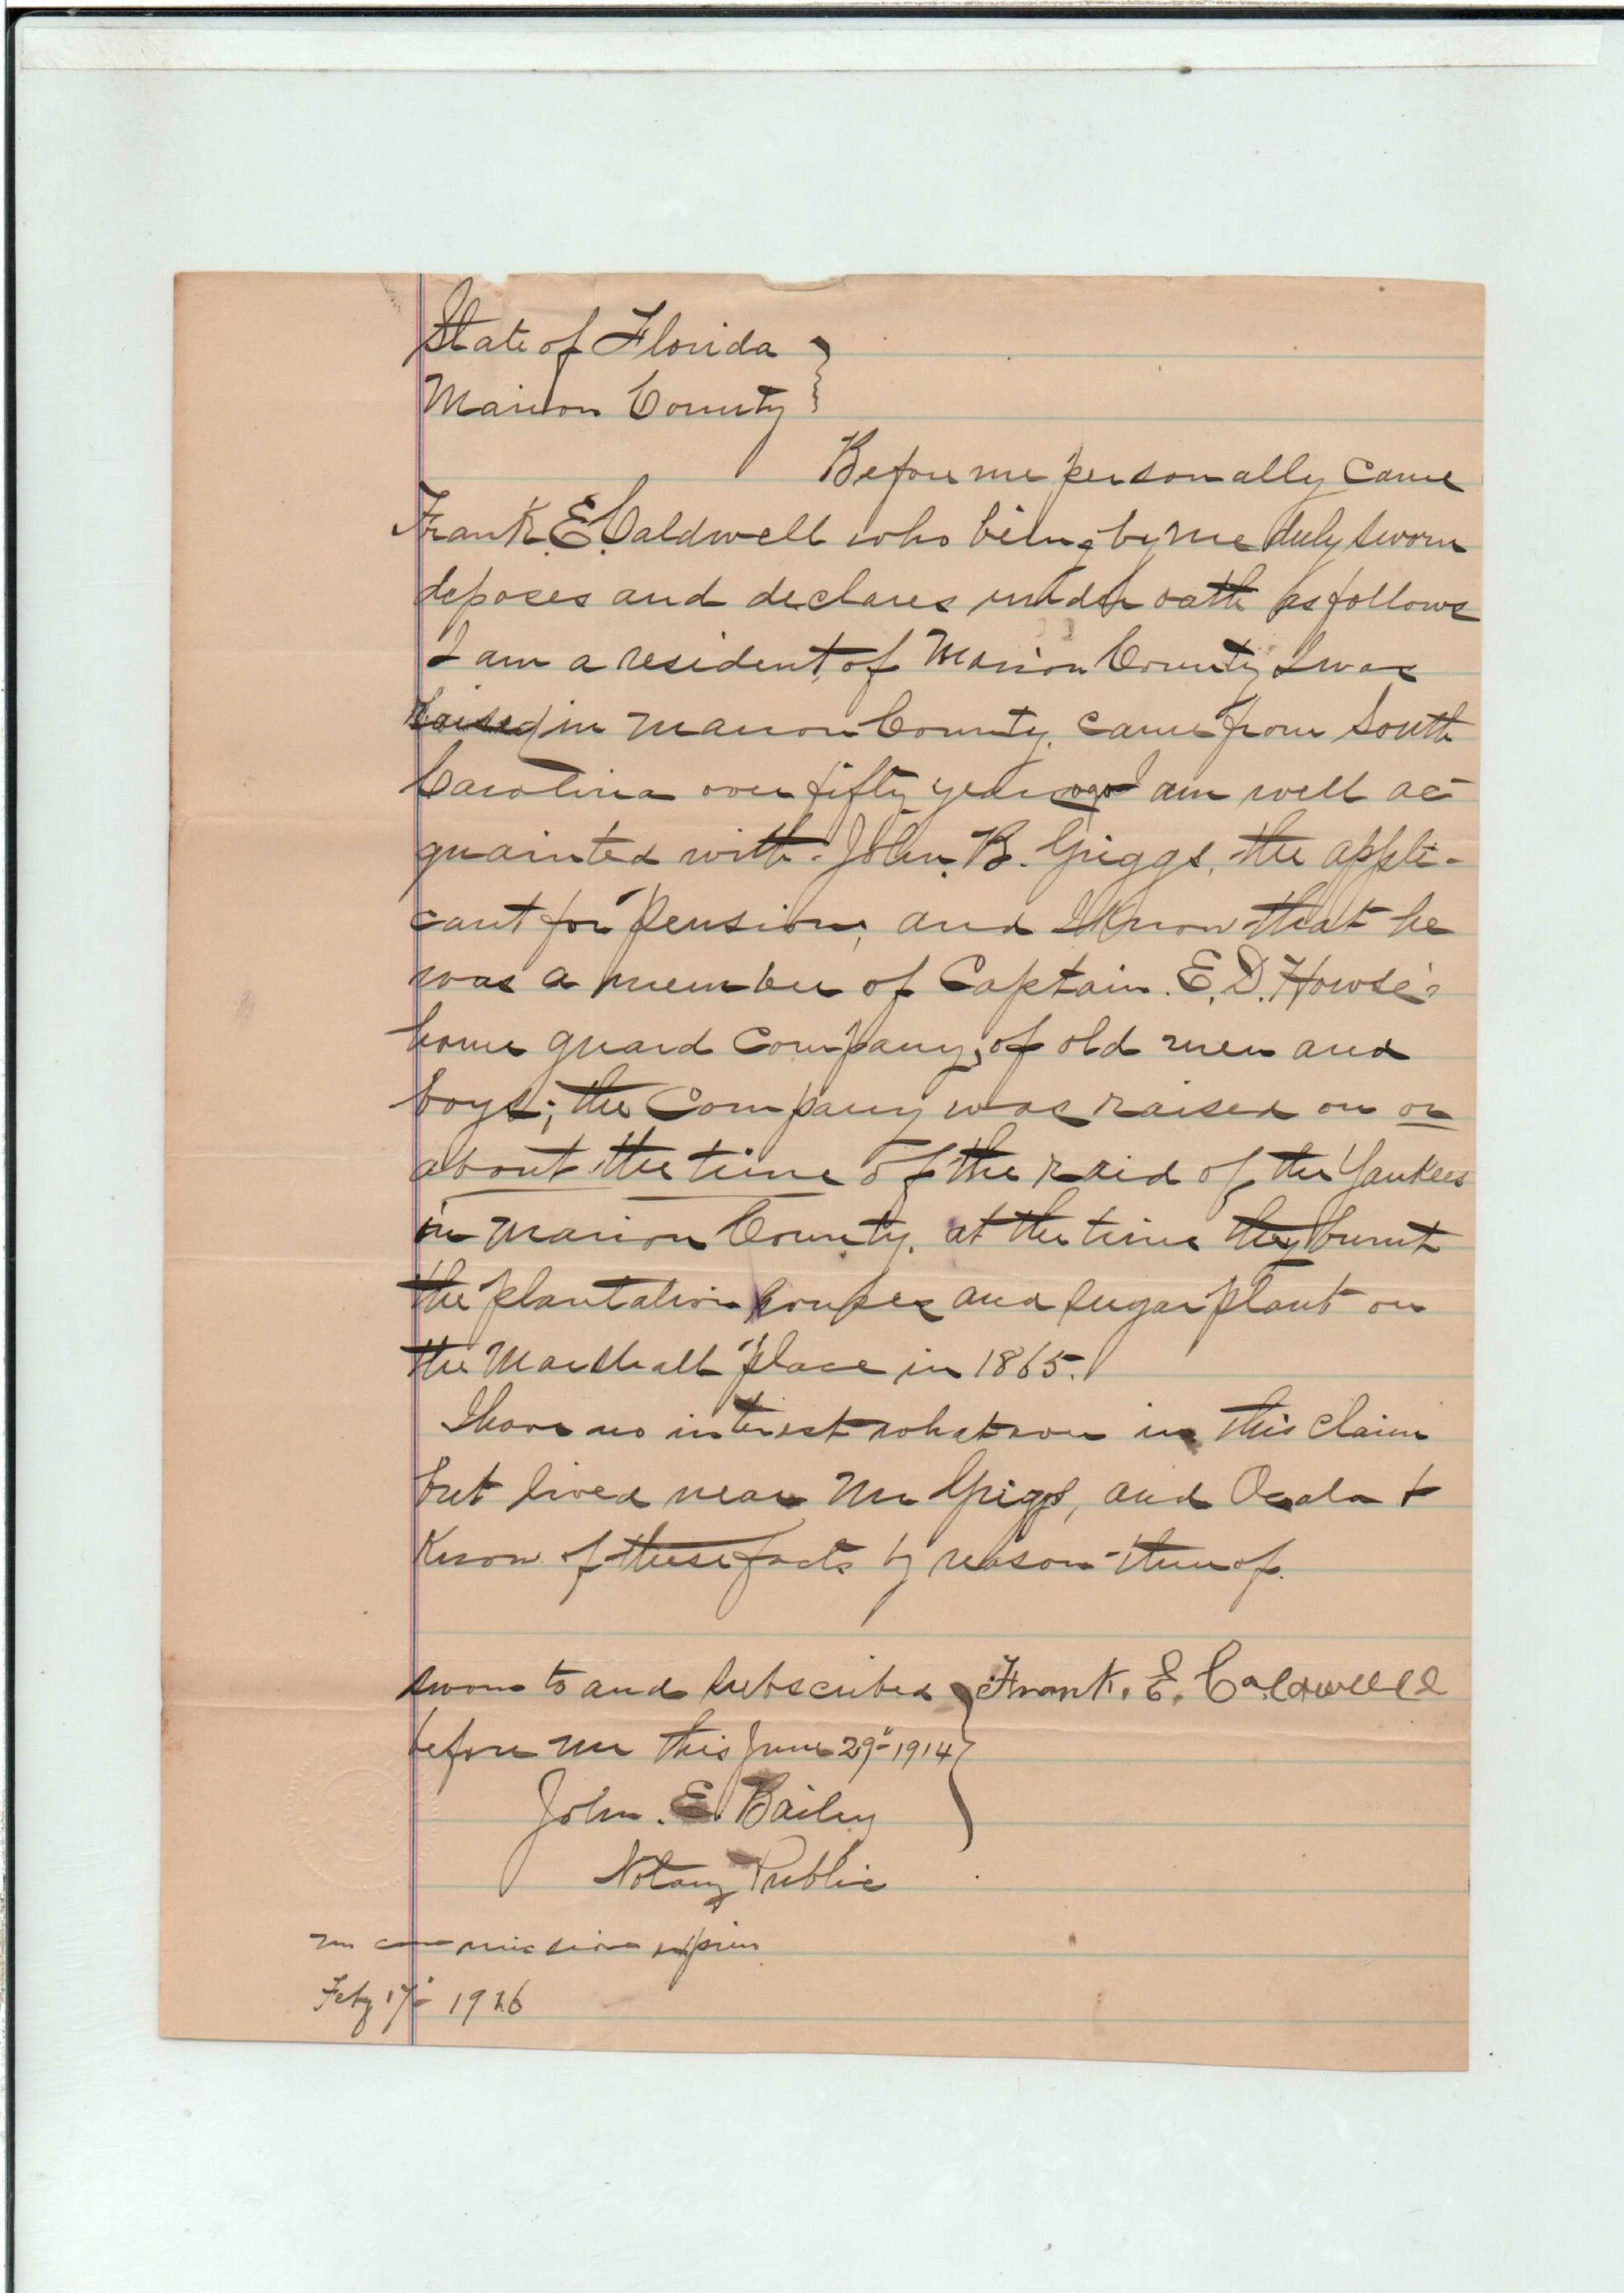 State of Florida }
Marion County }
Before me personally came
Frank E. Caldwell who being by me duly sworn
deposes and declares under oath as follows
I am a resident of Marion County I was
raised in Marion County. came from South
Carolina over fifty years ago I am well ac-
quainted with John. B. Griggs, the appli-
cant for Pension, and I know that he
was a member of Captain. E. D. Howse's
home guard Company, of old men and
boys; the Company was raised on or
about the time of the raid of the Yankees
in Marion County. at the time they burnt
the plantation houses and sugar plant on
the Marshall place in 1865.
I have no interest whatsoever in this claim
but lived near Mr Griggs, and Ocala &
Know of these facts by reason thereof.
Sworn to and subscribed } Frank. E. Caldwell
before me this June 29" 1914 }
John. E. Bailey
Notary Public
commission expires
Feby 17" 1916